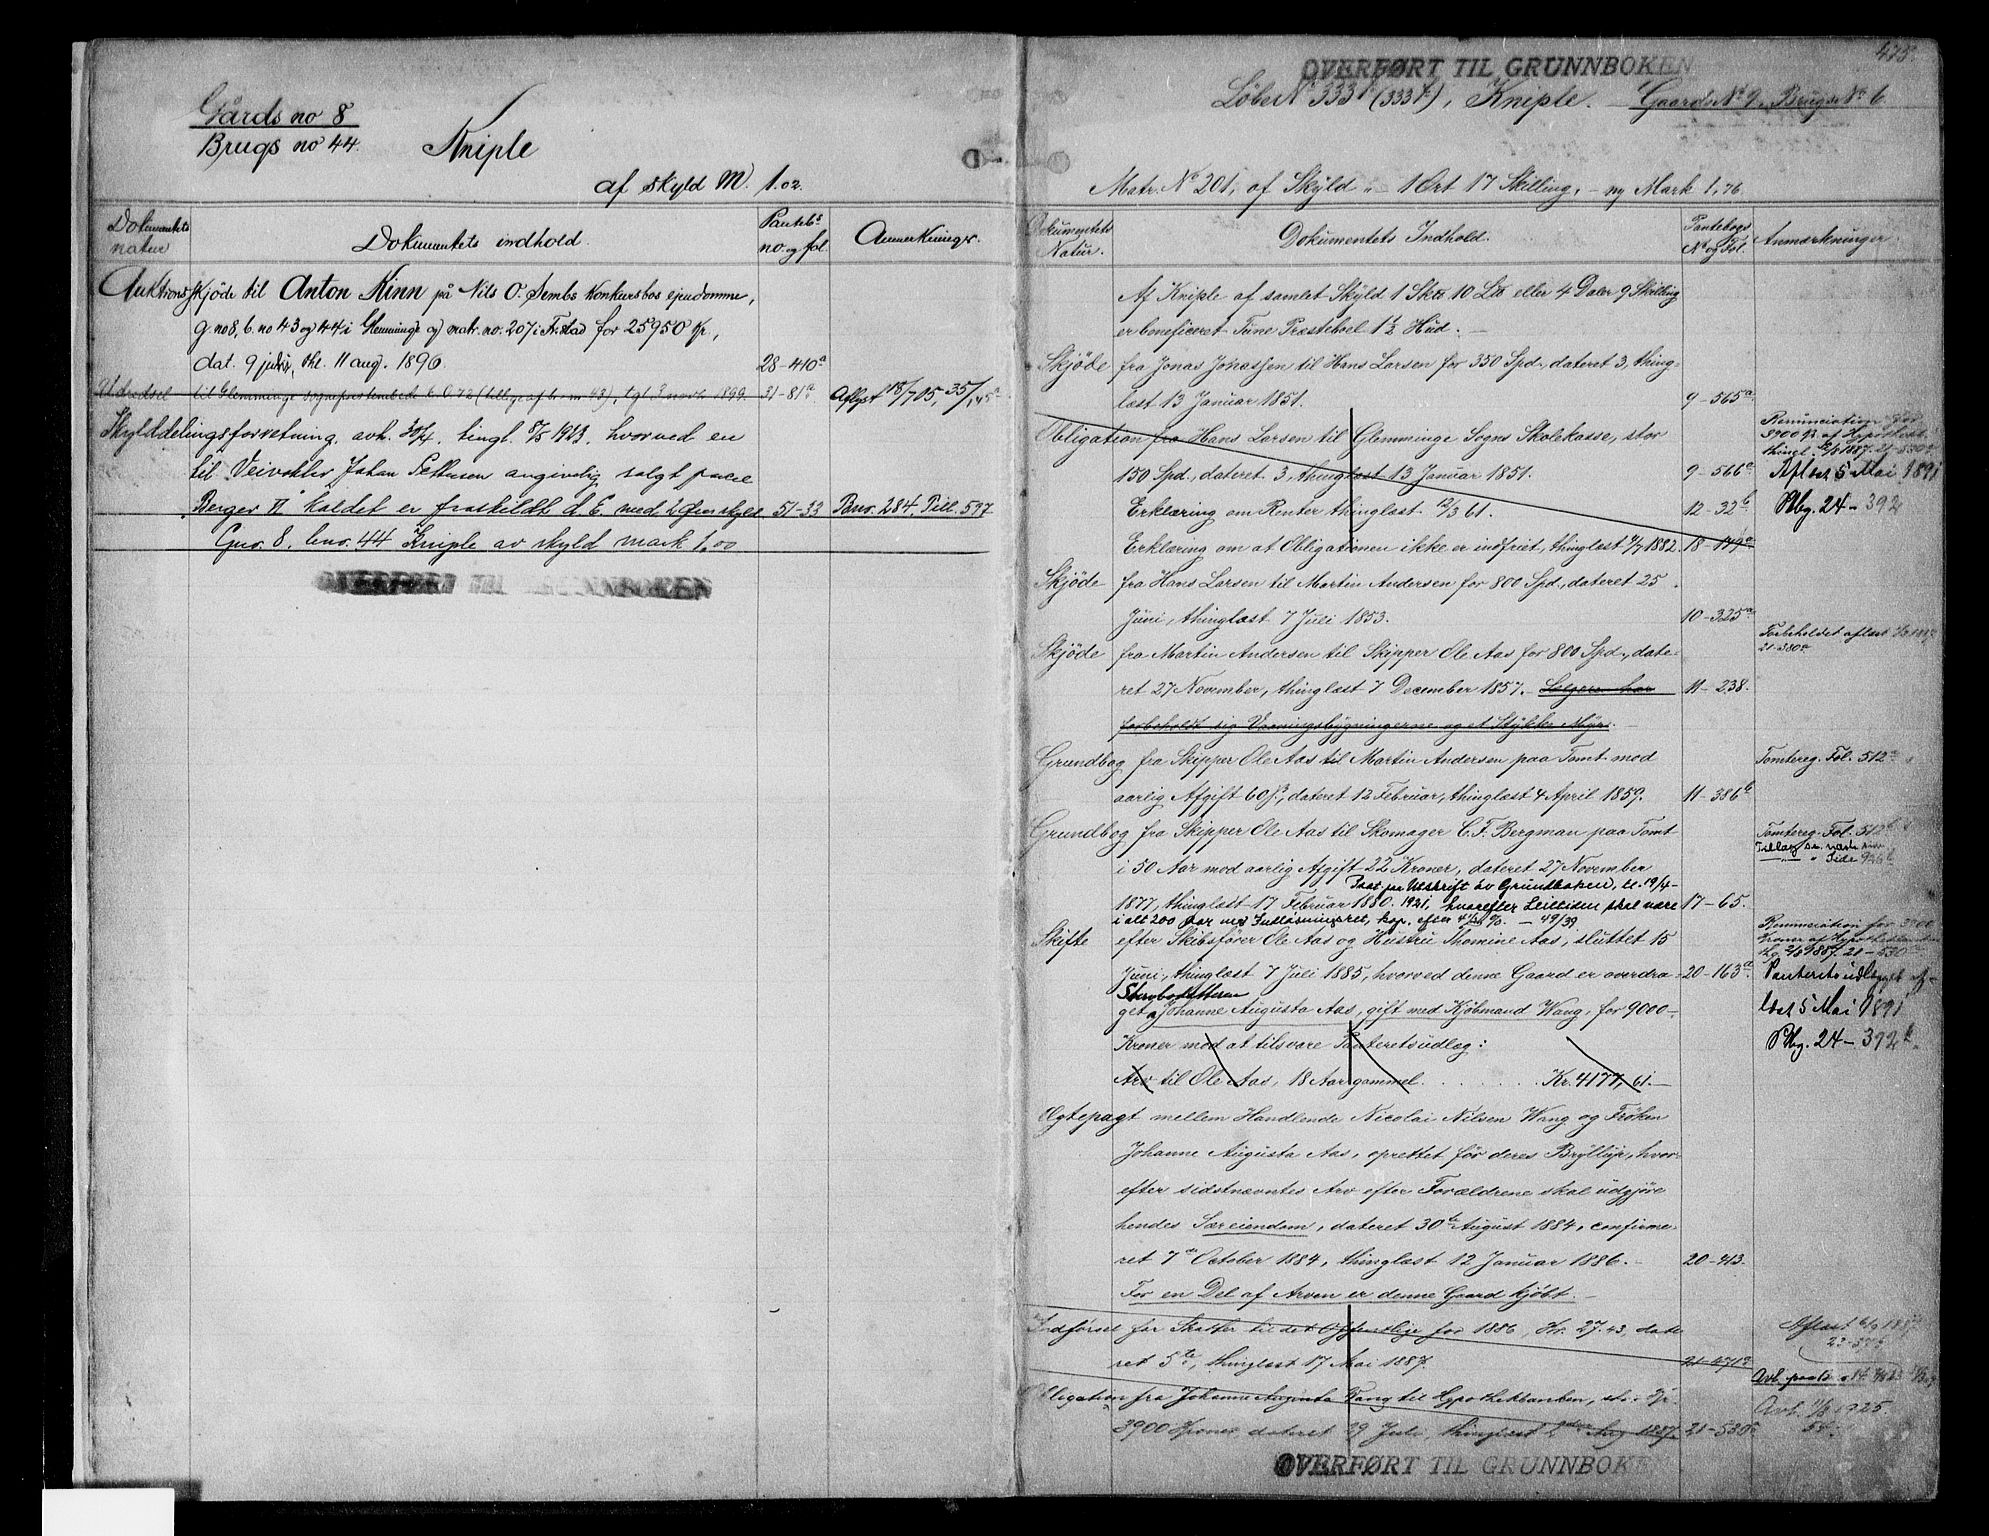 Gårds no 8
Brugs no 44. Kniple
af skyld M. 1.02.
Dokumentets natur
Dokumentets indhold.
Pantebs no. og fol
Anmerkninger.
Auktionsskjöde til Anton Kinn på Nils O. Sembs konkursbos ejendomme,
g. no 8, b. no 43 og 44 i Glemminge og matr. no. 207 i Fr.stad for 25950 Kr.,
dat. 9 juni, thl. 11 aug. 1896 28-410a
til Glemminge sogneprestembede k. 0.72 (tillige af br. nr 43), tgl. 3 novb. 1899. 31-81a Aflyst 18/7 05, 35/
Skylddelingsforretning, avh. 30/4, tingl. 1923, hvorved en
til Veivokter Johan Pettersen angivelig solgt parcel
"Berger II" kaldet er fraskildt d. E. med 2 Øres skyld 51-33 Bnr. 284. Till. 597
Gno. 8. bno. 44 Kniple av skyld mark 1,00
OVERFØRT TIL GRUNNBOKEN
475
OVERFØRT TIL GRUNNBOKEN
LøbeNo 333 (333), Kniple. - Gaards No 9, Brugs No 6.
Matr. No 201, af Skyld " - 1 Ort 17 Skilling, - ny Mark 1,76
Dokumentets Natur.
Dokumentets Indhold.
Pantebogs No og Fol.
Anmærkninger.
Af Kniple af samlet Skyld 1 Skp 10 Lb eller 4 Daler 9 Skilling
er beneficeret Tune Præstebol 1½ Hud. -
Skjöde fra Jonas Johnssen til Hans Larsen for 350 Spd., dateret 3, thing-
læst 13 Januar 1851. 9-565a
Obligation fra Hans Larsen til Glemminge Sogns Skolekasse, stor
150 Spd., dateret 3, thinglæst 13 Januar 1851. 9-566a Aflæst 5 Mai 1891
Erklæring om Renter thinglæst 12/3 61. 12-32b Pbg. 24-392
Erklæring om at Obligationen ikke er indfriet, thinglæst 4/7 1882. 18-
Skjöde fra Hans Larsen til Martin Andersen for 800 Spd., dateret 25
Juni, thinglæst 7 Juli 1853. 10-325a
Skjöde fra Martin Andersen til Skipper Ole Aas for 800 Spd., date-
ret 27 November, thinglæst 7 December 1857. Sælgeren har 11-238.
forbeholdt sig Vaaningsbygningerne og et Stykke Myr.
Forbeholdet aflæst
21-380a
Grundbog fra Skipper Ole Aas til Martin Andersen paa Tomt mod Tomtereg. Fol. 512a
aarlig Afgift 60 ß, dateret 12 Februar, thinglæst 4 April 1859. 11-386b
Grundbog fra Skipper Ole Aas til Skomager C. F. Bergman paa Tomt Tomtereg. Fol. 512b
i 50 Aar mod aarlig Afgift 22 Kroner, dateret 27 November Tillæg se næste side
Paat. paa Utskrift av Grundboken, tl. 19/4-
1877, thinglæst 17 Februar 1880. 1921, hvorefter Leietiden skal være 17-65.
i alt 200 Aar med Indløsningsret, kap. efter 4½ % - 49/39
Skifte efter Skibsfører Ole Aas og Hustru Thomine Aas, sluttet 15
Juni, thinglæst 7 Juli 1885, hvorved denne Gaard er overdra- 20-163a. Panteretsudlægget af-
Stervbodatteren
get Johanne Augusta Aas, gift med Kjøbmand Wang, for 9000 læst 5 Mai 1891
Kroner mod at tilsvare Panteretsudlæg: Pbg. 24-392b.
Arv til Ole Aas, 18 Aar gammel . . . . . . Kr. 4177,61.-
Ægtepagt mellem Handlende Nicolai Nilsen Wang og Frøken
Johanne Augusta Aas, oprettet før deres Bryllup, hvor-
efter sidstnævntes Arv efter Forældrene skal udgjøre
hendes Særeiendom, dateret 30te August 1884, confirme-
ret 7de October 1884, thinglæst 12 Januar 1886. - 20-413.
For en Del af Arven er denne Gaard kjøbt. -
Indførsel for Skatter til det Offentlige for 1886, Kr. 27.43, date-
ret 5te, thinglæst 17 Mai 1887. 21-471a
Obligation fra Johanne Augusta Wang til Hypothekbanken, st.
3900 Kroner, dateret 29 Juli, thinglæst 2 Aug 1887. 21-530a Avl. 1925.
OVERFØRT TIL GRUNNBOKEN